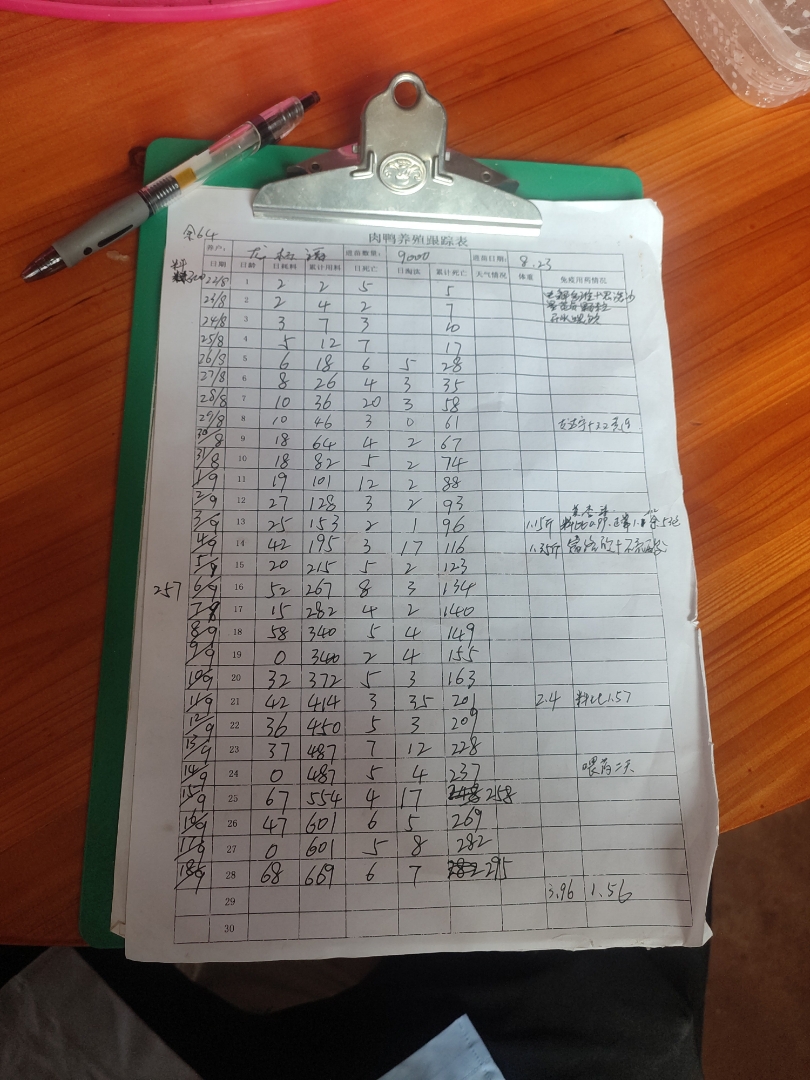 余64
肉鸭养殖跟踪表
养户: 进苗数量: 9000 进苗日期: 8.23
日期 日龄 日耗料 累计用料 日死亡 日淘汰 累计死亡 天气情况 体重 免疫用药情况
22/8 1 2 2 5 5
23/8 2 2 4 2 7
24/8 3 3 7 3 10
25/8 4 5 12 7 17
26/8 5 6 18 6 5 28
27/8 6 8 26 4 3 35
28/8 7 10 36 20 3 58
29/8 8 10 46 3 0 61
30/8 9 18 64 4 2 67
31/8 10 18 82 5 2 74
1/9 11 19 101 12 2 88
2/9 12 27 128 3 2 93
3/9 13 25 153 2 1 96 1.15斤
4/9 14 42 195 3 17 116 1.35斤
5/9 15 20 215 5 2 123
257 6/9 16 52 267 8 3 134
7/9 17 15 282 4 2 140
8/9 18 58 340 5 4 149
9/9 19 0 340 2 4 155
10/9 20 32 372 5 3 163
11/9 21 42 414 3 35 201 2.4 料比1.57
12/9 22 36 450 5 3 209
13/9 23 37 487 7 12 228
14/9 24 0 487 5 4 237 喂药二天
15/9 25 67 554 4 17 258
16/9 26 47 601 6 5 269
17/9 27 0 601 5 8 282
18/9 28 68 669 6 7 295
29 3.96 1.56
30